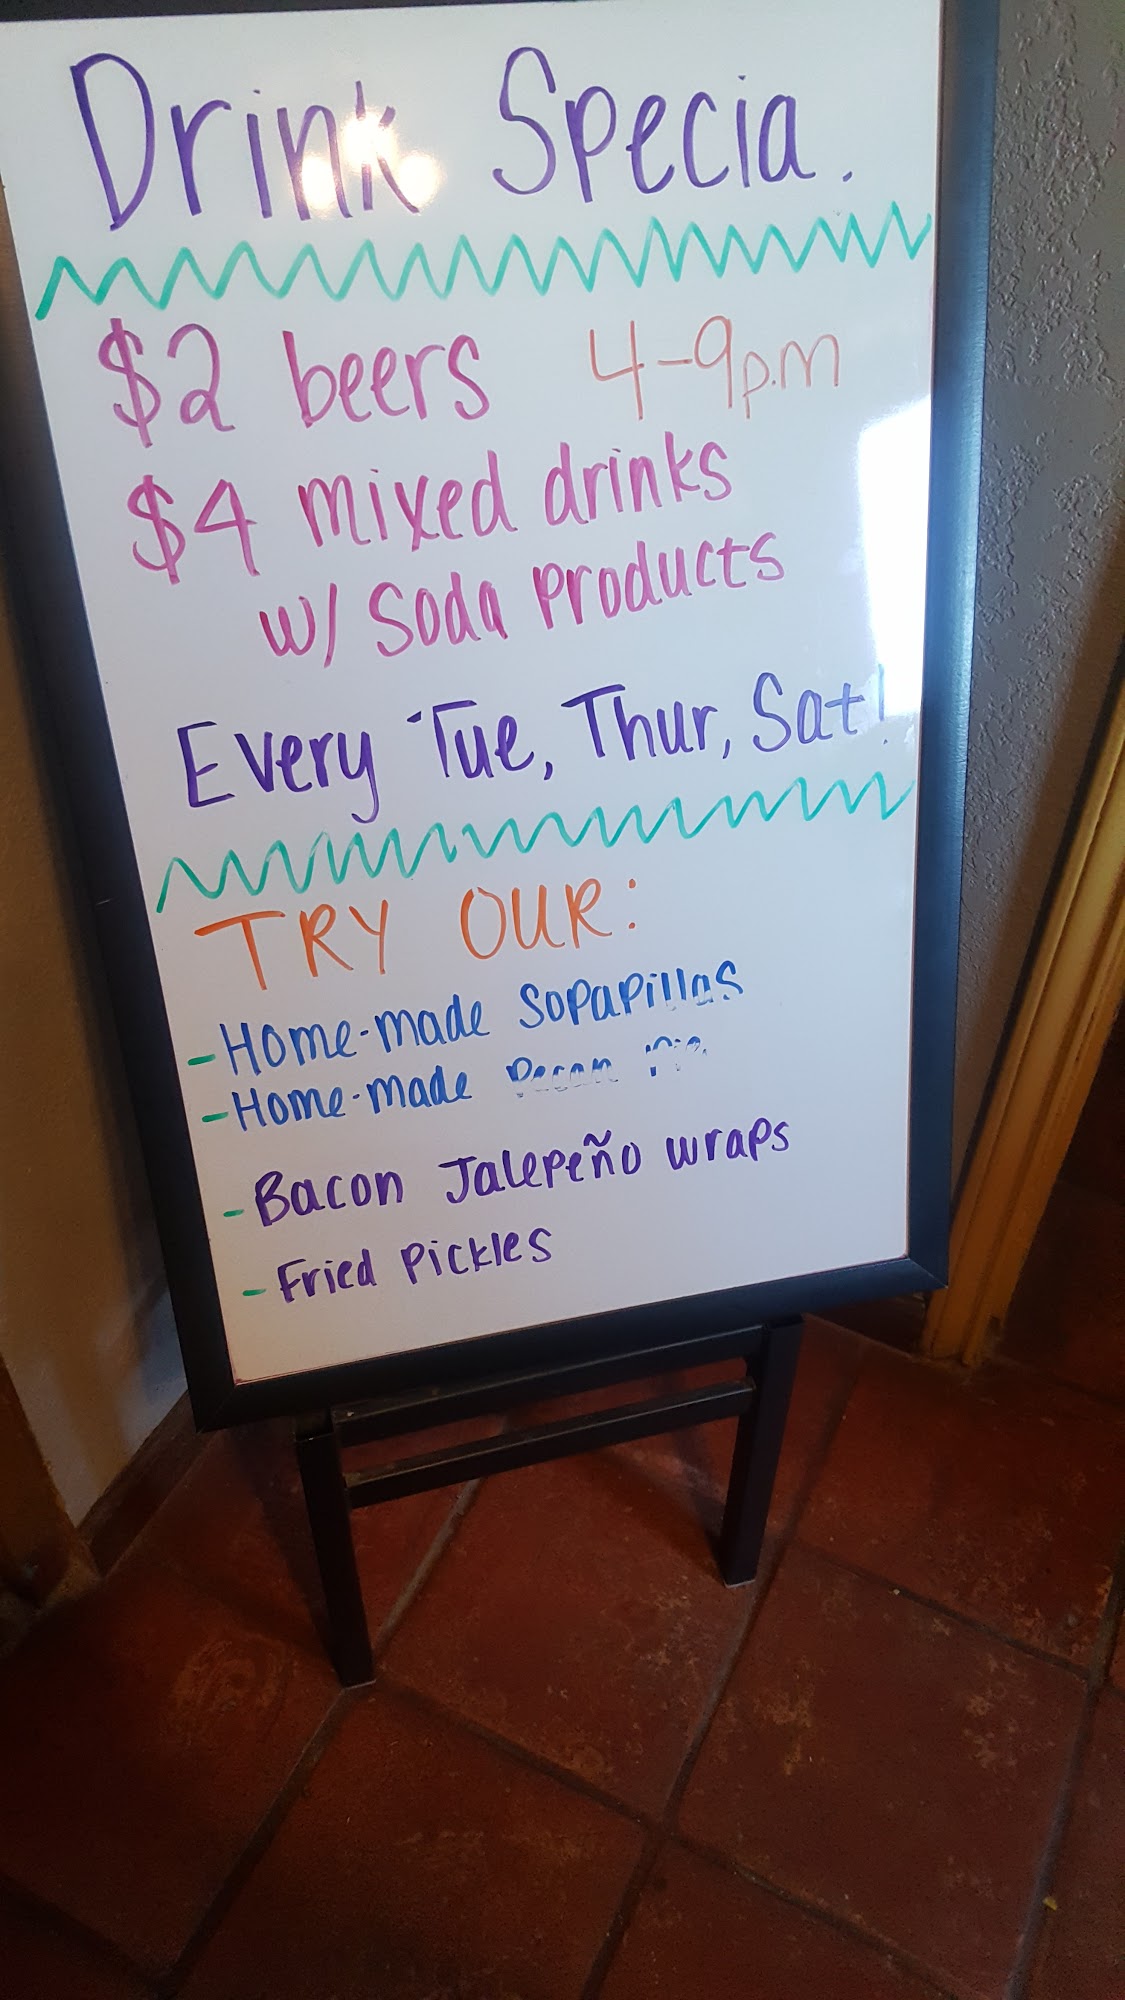 Drink Specia
$2 beers 4-9p.m
$4 mixed drinks
w/ Soda Products
Every Tue, Thur, Sat!
TRY OUR:
- Home-made Sopapillas
- Home-made Pecan Pie
- Bacon Jalepeño wraps
- Fried Pickles